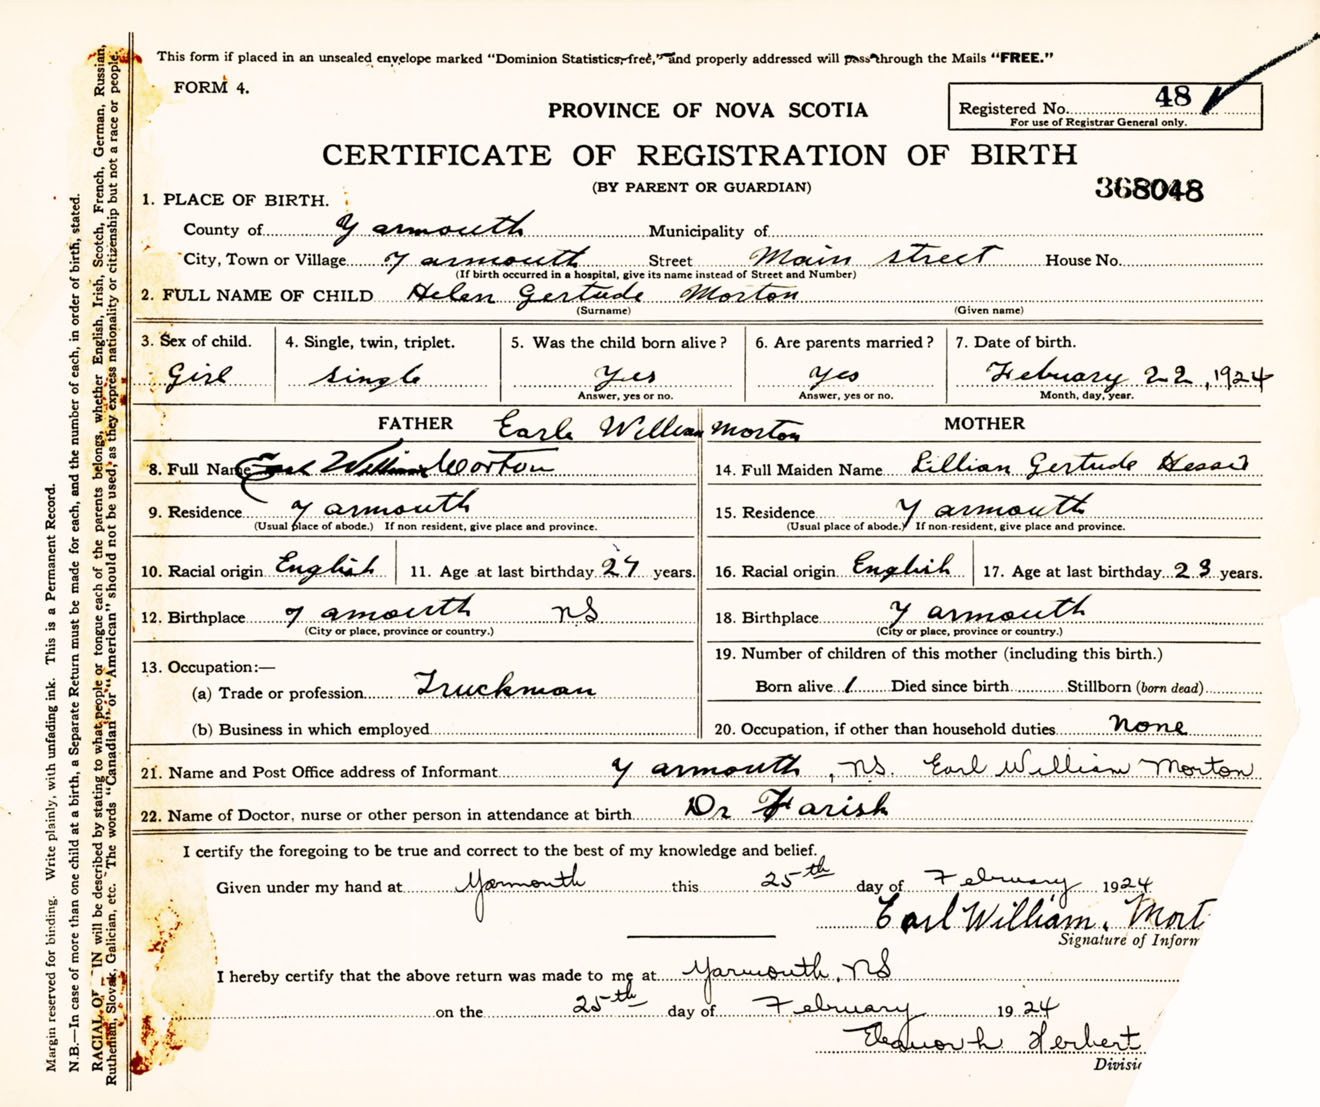 This form if placed in an unsealed envelope marked "Dominion Statistics-free," and properly addressed will pass through the Mails "FREE."
FORM 4.
PROVINCE OF NOVA SCOTIA
Registered No. 48
For use of Registrar General only.
CERTIFICATE OF REGISTRATION OF BIRTH
(BY PARENT OR GUARDIAN)
368048
1. PLACE OF BIRTH.
County of Yarmouth Municipality of
City, Town or Village Yarmouth Street Main street House No.
(If birth occurred in a hospital, give its name instead of Street and Number)
2. FULL NAME OF CHILD Helen Gertude Morton
(Surname) (Given name)
3. Sex of child. 4. Single, twin, triplet. 5. Was the child born alive? 6. Are parents married? 7. Date of birth.
Girl single Yes yes February 22, 1924
Answer, yes or no. Answer, yes or no. Month, day, year.
FATHER Earle William Morton MOTHER
8. Full Name Earl William Morton 14. Full Maiden Name Lillian Gertude
9. Residence Yarmouth 15. Residence Yarmouth
(Usual place of abode.) If non resident, give place and province. (Usual place of abode.) If non-resident, give place and province.
10. Racial origin English 11. Age at last birthday 27 years. 16. Racial origin English 17. Age at last birthday 23 years.
12. Birthplace Yamouth NS 18. Birthplace Yarmouth
(City or place, province or country.) (City or place, province or country.)
13. Occupation:— 19. Number of children of this mother (including this birth.)
(a) Trade or profession Truckman Born alive 1 Died since birth Stillborn (born dead)
(b) Business in which employed 20. Occupation, if other than household duties None
21. Name and Post Office address of Informant Yarmouth, NS. Earl William Morton
22. Name of Doctor, nurse or other person in attendance at birth Dr Farish
I certify the foregoing to be true and correct to the best of my knowledge and belief.
Given under my hand at Yarmouth this 25th day of February 1924
Earl William Mort
Signature of Inform
I hereby certify that the above return was made to me at Yarmouth, NS
on the 25th day of February 1924
Eleanor h Herbert
Divisi
Margin reserved for binding. Write plainly, with unfading ink. This is a Permanent Record.
N.B.—In case of more than one child at a birth, a Separate Return must be made for each, and the number of each, in order of birth, stated.
RACIAL O IN will be described by stating to what people or tongue each of the parents belongs, whether English, Irish, Scotch, French, German, Russian,
Ruthenian, Slovak, Galician, etc. The words "Canadian" or "American" should not be used, as they express nationality or citizenship but not a race or people.